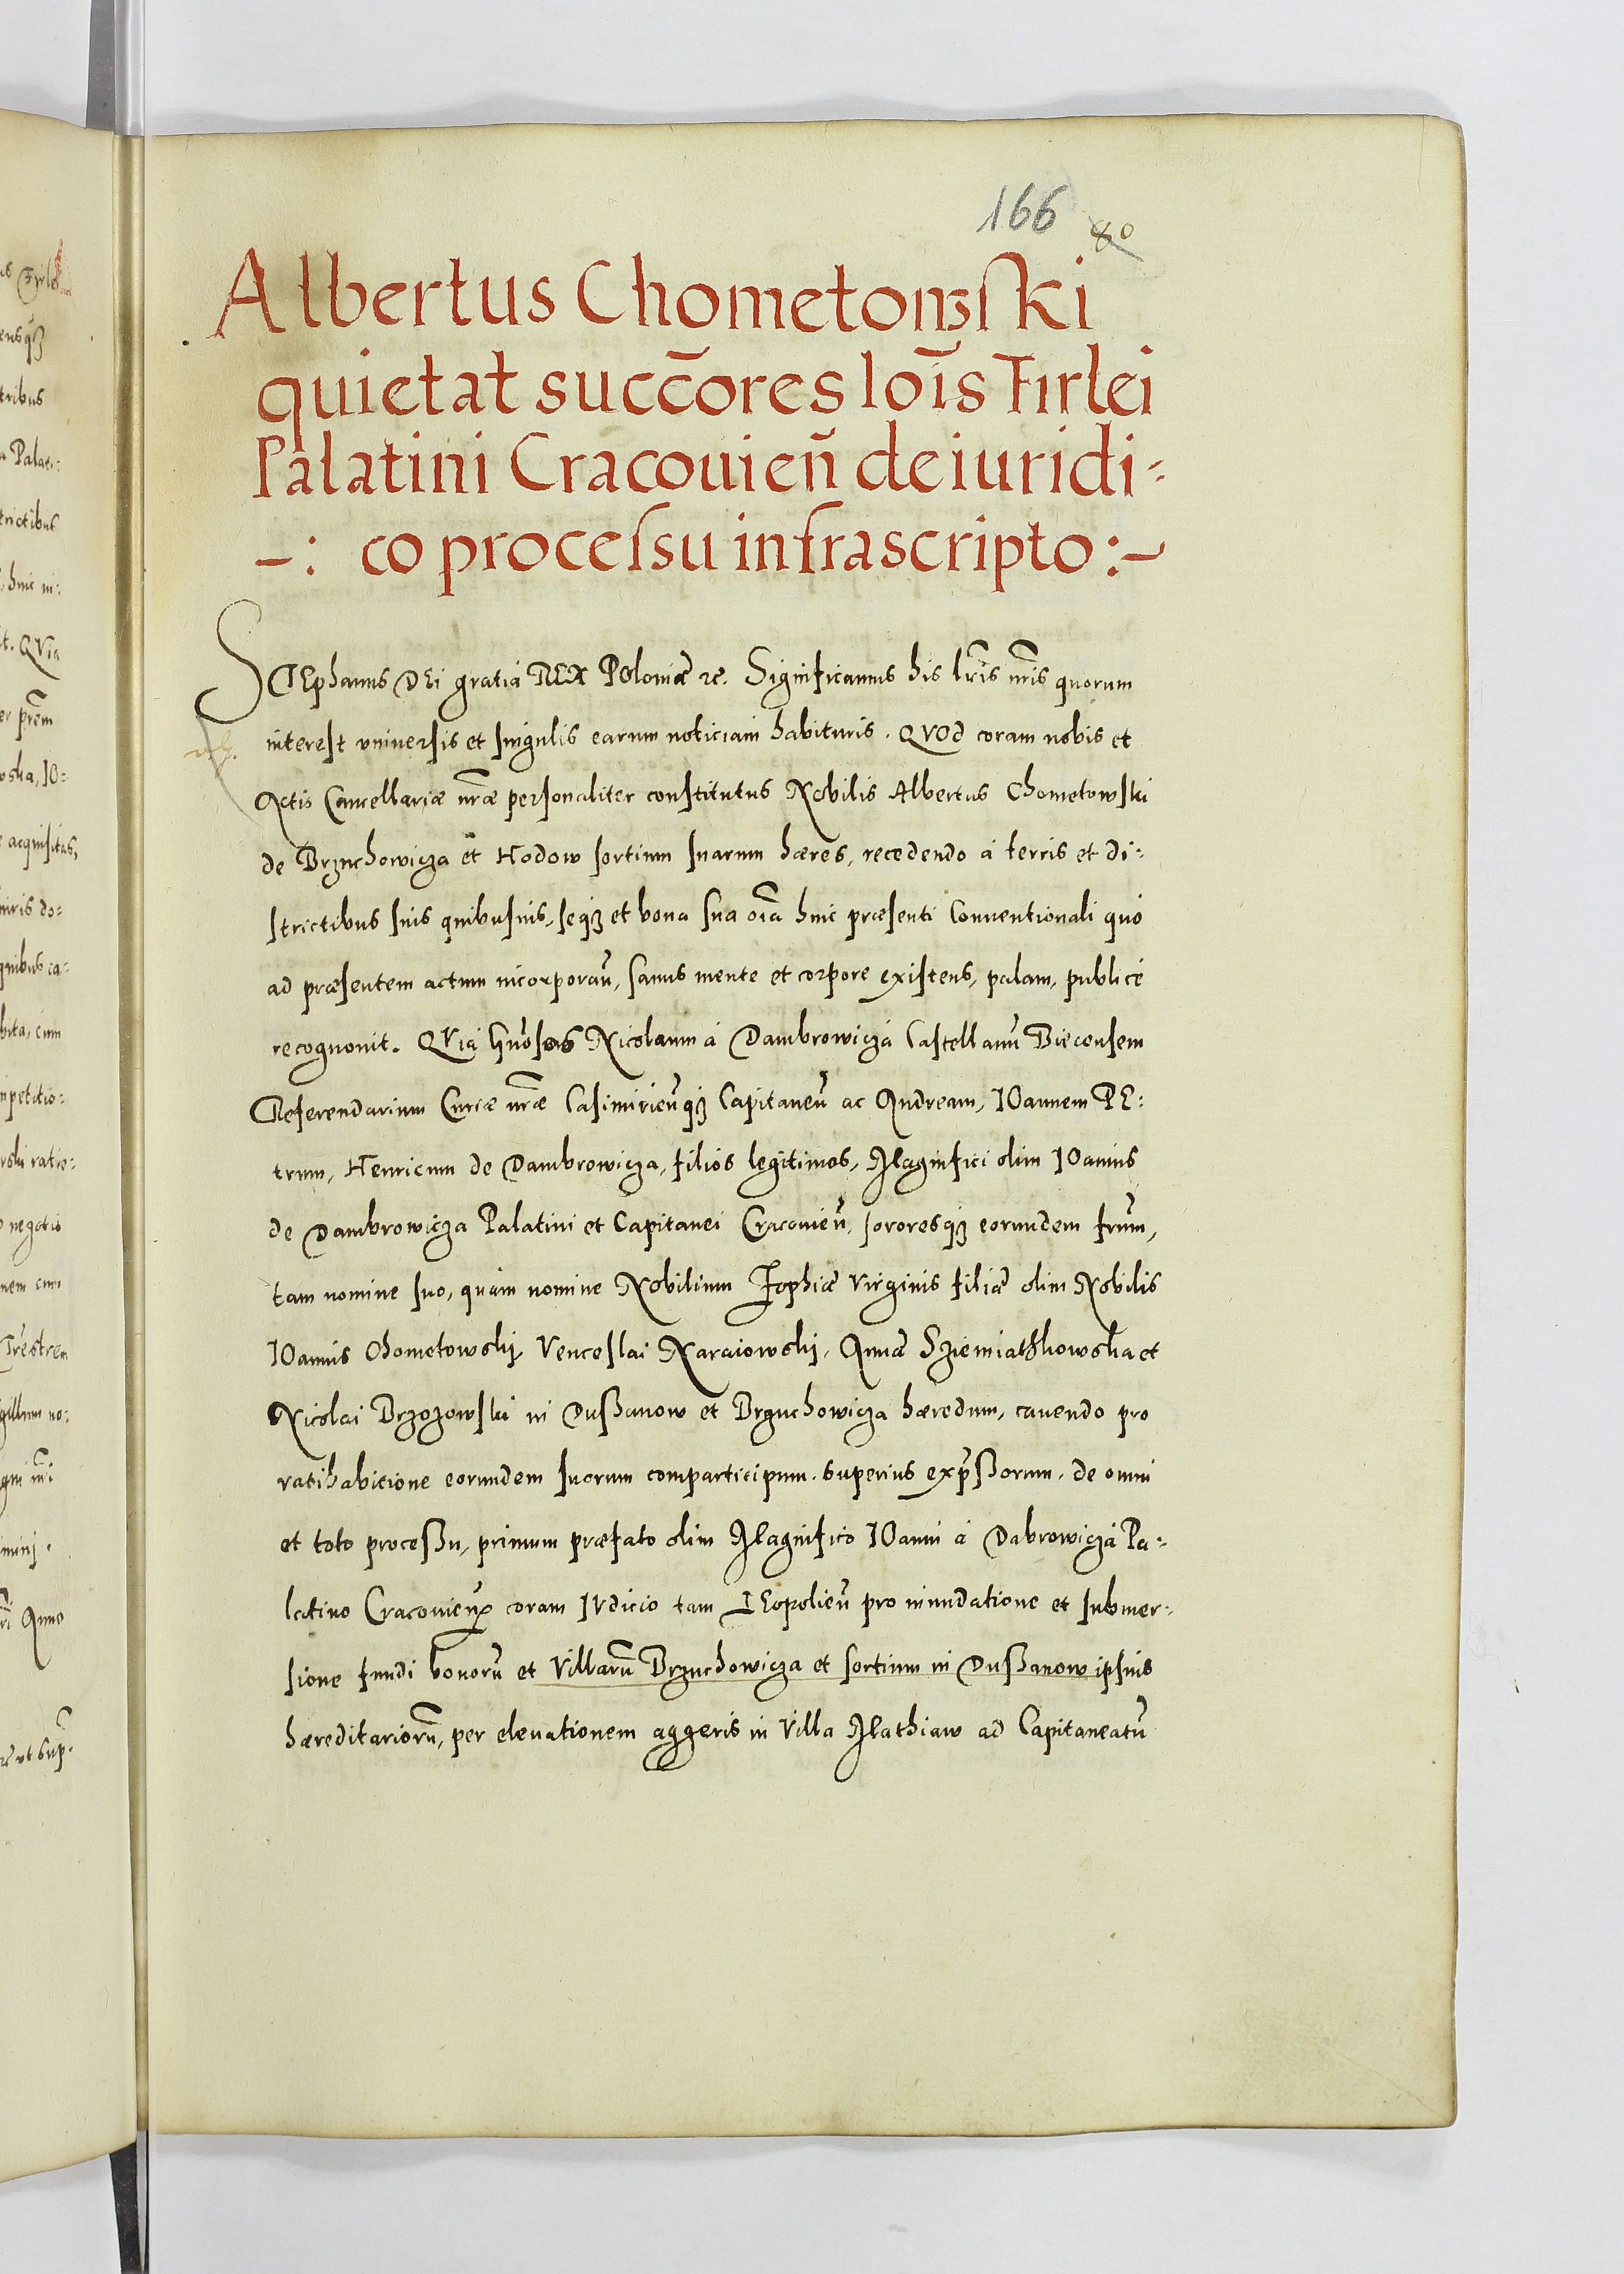 166 80
Albertus Chometowski
quietat succ̄ores Ioīs Firlei
Palatini Cracouien̄ de iuridi-
-: co processu infrascripto:-
STEphanus DEi gratia REX Poloniæ etc. Significamus his lr̄is nr̄is quorum
interest vniuersis et singulis earum noticiam habituris. QVOd coram nobis et
Actis Cancellariæ nr̄æ personaliter constitutus Nobilis Albertus Chometowski
de Brzuchowicza et Hodow sortium suarum hæres, recedendo á terris et di-
strictibus suis quibusuis, seqȝ et bona sua oīa huic præsenti Conuentionali quó
ad præsentem actum incorporan̄, sanus mente et corpore existens, palam, publicé
recognouit. QVia Gn̄osos Nicolaum á Dambrowicza Castellanū Biecensem
Referendarium Curiæ nr̄æ Casimirien̄qȝ Capitaneū ac Andream, IOannem PE-
trum, Henricum de Dambrowicza, filios legitimos, Magnifici olim IOannis
de Dambrowicza Palatini et Capitanei Cracouien̄, sororesqȝ eorundem frūm,
tam nomine suo, quám nomine Nobilium Zophiæ Virginis filiæ olim Nobilis
IOannis Chometowskj, Venceslai Naraiowskj, Annæ Sziemiathkowska et
Nicolai Brzozowski in Dußanow et Brzuchowicza hæredum, cauendo pro
ratihabicione eorundem suorum comparticipum superius exp̄ßorum, de omni
et toto proceßu, primum præfato olim Magnifico IOanni á Dabrowicza Pa-
latino Cracouien̄ coram IVdicio tam LEopolien̄ pro inundatione et submer-
sione fundi bonorū et Villarū Brzuchowicza et sortium in Dußanow ipsius
hæreditariorū, per eleuationem aggeris in Villa Mathiaw ad Capitaneatū